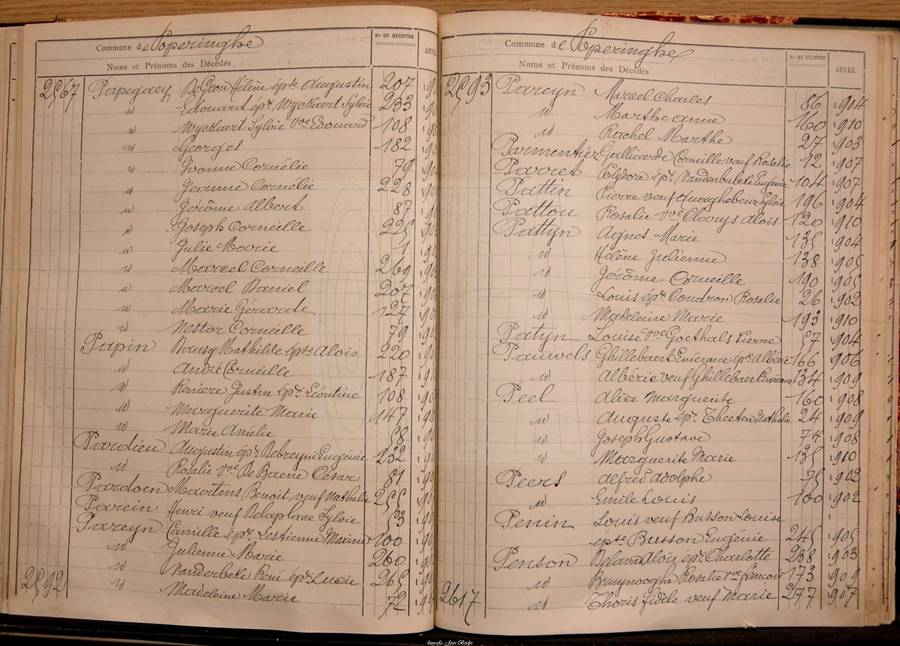 Commune de Poperinghe
Noms et Prénoms des Décédés
N° DU REGISTRE
2567 Papegaey Hélène épse Augustin 207
id Edouard épx Wyckaert Sylvie 233
id Wyckaert Sylvie vve Edouard 108
id Georges 182
id Ivonne Cornélie 79
id Jeanne Cornélie 228
id Jérôme Albert 87
id Joseph Corneille
id Julie Marie 1
id Marcel Corneille 269
id Marcel Daniel 207
id Marie Gérarde 127
id Nestor Corneille 79
Papin Mathilde épse Aloïs 220
id André Corneille 187
id Reniere Justin épx Léontine 108
id Marguerite Marie 147
id Marie Amélie 58
Pardieu Augustin épx Debreyne Eugénie 232
id Rosalie vve De Baene César 81
Pardoen Martens Benoit veuf Nathalie 255
Parein Henri veuf Delaplace Sylvie 53
Pareyn Camille épx Lestienne 100
id Julienne Marie 260
id Vanderbeke René épx Lucie 265
2592 id Madeleine Marie 72
Commune de Poperinghe
Noms et Prénoms des Décédés
N° DU REGISTRE
ANNÉE
2593 Pareyn Marcel Charles 86 1904
id Marthe Anna 160 1910
id Rachel Marthe 27 1903
Parmentier Corneille veuf Rosalie 12 1907
Parret épx Vandenbulcke Eugénie 104 1907
Pattin Pierre veuf Quaghebeur Sylvie 196 1904
Pattou Rosalie vve Clarys Aloïs 120 1910
Pattyn Agnes Marie 135 1904
id Hélène Julienne 138 1905
id Jérôme Corneille 190 1905
id Louis épx Coudron Rosalie 26 1902
id Madeleine Marie 193 1910
Patyn Louise vve Goethals Pierre 57 1904
Pauwels Ghillebaert épse Albéric 166 1906
id Albéric veuf Ghillebaert 134 1909
Peel Alice Marguerite 160 1908
id Auguste épx Theeten Nathalie 24 1909
id Joseph Gustave 74 1908
id Marguerite Marie 135 1910
Peers Alfred Adolphe 75 1902
id Emile Louis 100 1902
Penin Louis veuf Busson Louise
épx Busson Eugénie 245 1905
Penson Aloïs épx Charlotte 238 1903
id Bruynooghe Rosalie vve François 173 1909
2617 id Thoris Fidèle veuf Marie 277 1907